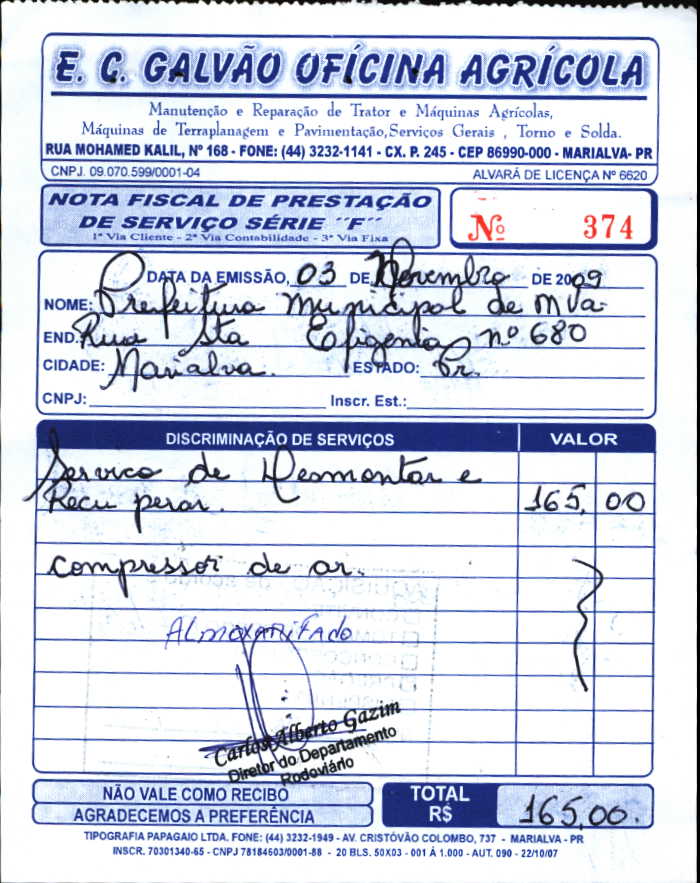 E. C. GALVÃO OFÍCINA AGRÍCOLA
Manutenção e Reparação de Trator e Máquinas Agrícolas,
Máquinas de Terraplanagem e Pavimentação,Serviços Gerais , Torno e Solda.
RUA MOHAMED KALIL, Nº 168 - FONE: (44) 3232-1141 - CX. P. 245 - CEP 86990-000 - MARIALVA- PR
CNPJ. 09.070.599/0001-04 ALVARÁ DE LICENÇA Nº 6620
NOTA FISCAL DE PRESTAÇÃO
DE SERVIÇO SÉRIE ´´F´´
1ª Via Cliente - 2ª Via Contabilidade - 3ª Via Fixa
Nº 374
DATA DA EMISSÃO, 03 DE Novembro DE 2009
NOME: Prefeitura Municipal de Mva
END. Rua Sta Efigenia nº 680
CIDADE: Marialva. ESTADO: Pr.
CNPJ: Inscr. Est.:
DISCRIMINAÇÃO DE SERVIÇOS VALOR
Servico de Desmontar e
Recuperar. 165,00
compressor de ar.
ALMOXARIFADO
Carlos Alberto Gazim
Diretor do Departamento
Rodoviário
NÃO VALE COMO RECIBO
AGRADECEMOS A PREFERÊNCIA
TOTAL
R$ 165,00.
TIPOGRAFIA PAPAGAIO LTDA. FONE: (44) 3232-1949 - AV. CRISTÓVÃO COLOMBO, 737 - MARIALVA - PR
INSCR. 70301340-65 - CNPJ 78184603/0001-88 - 20 BLS. 50X03 - 001 À 1.000 - AUT. 090 - 22/10/07